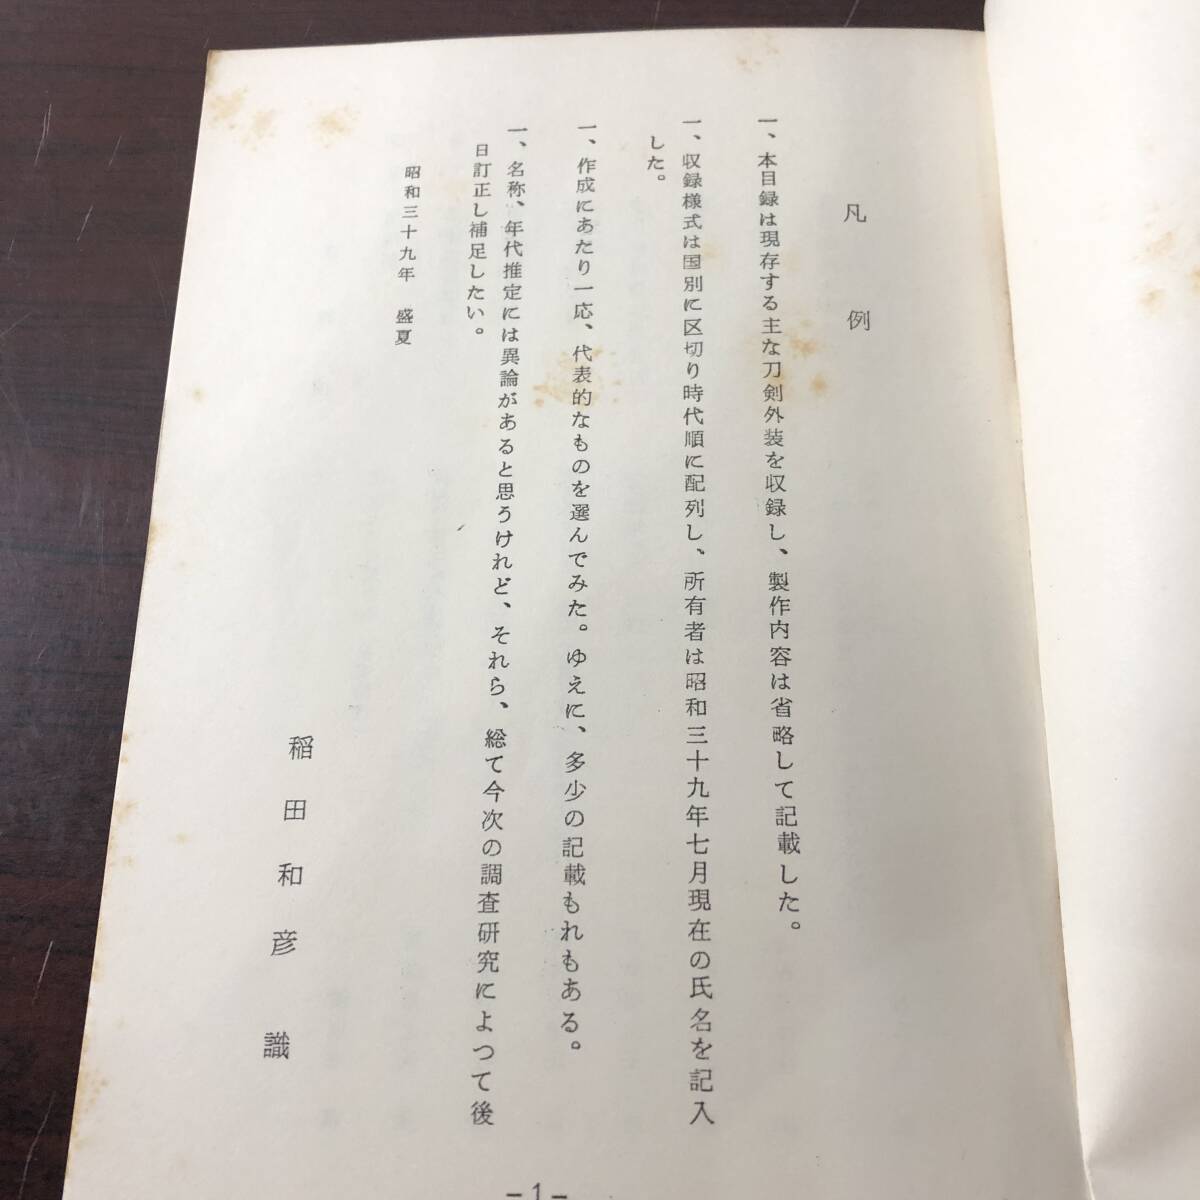 凡例
一、本目録は現存する主な刀剣外装を収録し、製作内容は省略して記載した。
一、収録様式は国別に区切り時代順に配列し、所有者は昭和三十九年七月現在の氏名を記入
した。
一、作成にあたり一応、代表的なものを選んでみた。ゆえに、多少の記載もれもある。
一、名称、年代推定には異論があると思うけれど、それら、総て今次の調査研究によつて後
日訂正し補足したい。
昭和三十九年　盛夏
稲田和彦　識
－1－